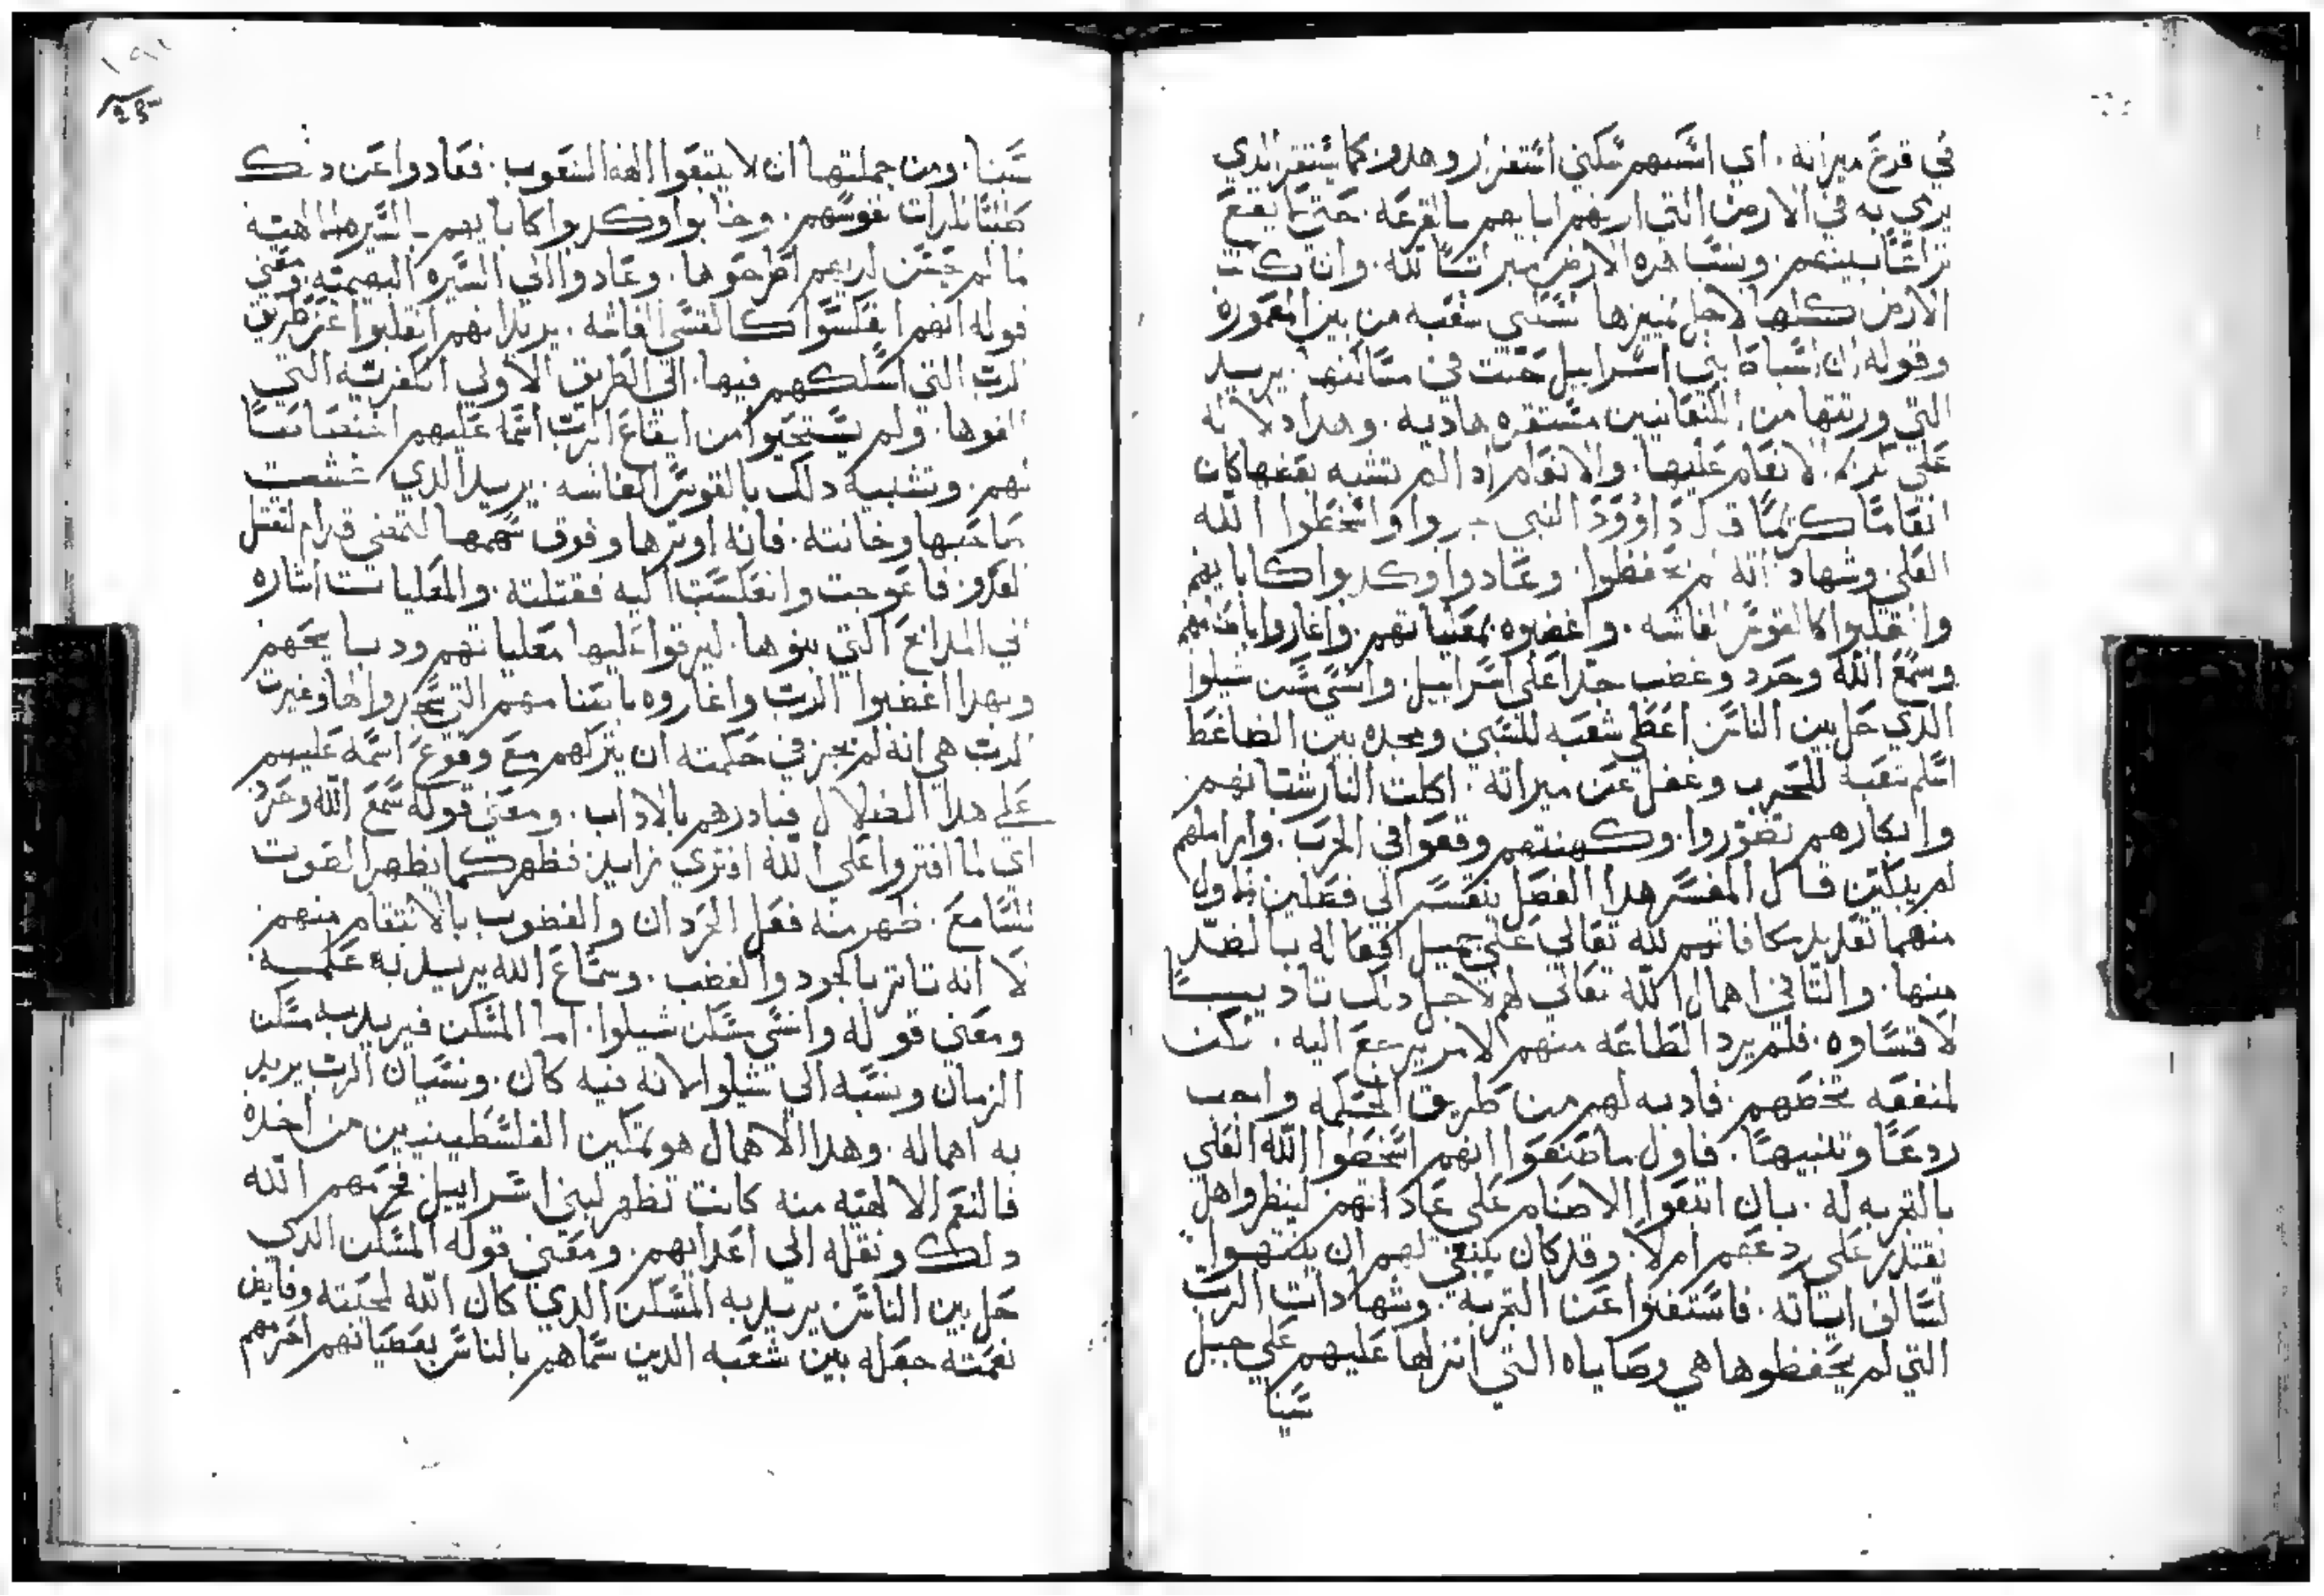 في قرع ميراثه. اي اسكنهم سكنى استقرار وهدو كما يستقر الذي
يرمي به في الارض التي اورثهم اياهم بالقرعه. حتى لا يقع
بينهم. ونسب هذه الارض ميراثا لله. وان كانت
الارض كلها لاجل تميزها بسكنى شعبه من بين المعموره
وقوله ان اسباط بني اسراييل حلت في مساكنها. يريد
التي ورثتها من الكنعانيين مستقره هاديه. وهدا دلاله
على الانعام عليها. والانعام ادا لم تشبه نقمه كان
انعاما كريما قال داوود النبي جربوا واسخطوا الله
العلي وشهاداته لم يحفظوا. وعادوا وكدبوا كابايهم
وانقلبوا كالقوس الغاشه. واغضبوه بمعلياتهم. واغاروه باصنامهم
وسمع الله وحرد وغضب جدا على اسراييل. وانسي مسكن شيلوا
الذي حل بين الناس اعطى شعبه للسبي ومجده بين الضاغط
اسلم شعبه للحرب وغفل عن ميراثه. اكلت النار شبانهم
وابكارهم وكهنتهم وقعوا في الحرب. واراملهم
لم يبكين قال المفسر هدا الفصل ينقسم الى فصلين الاول
منهما تعديد مكافاتهم لله تعالى على جميل افعاله بالضد
منها. والثاني اهمال الله تعالى لهم لاجل دلك تاديبا
لا قساوه. فلم يرد الطاعه منهم لامر يرجع اليه. لكن
لمنفعه تخصهم. فادبه لهم من طريق الحكمه واجب
ردعا وتنبيها. فاول ما صنعوا انهم اسخطوا الله العلي
بالتجربه له. بان اتبعوا الاصنام على عاداتهم لينظروا هل
يقتدر على ردعهم ام لا. وقد كان ينبغي لهم ان ينتهوا
لسالف اياته. فاستغنوا عن التجربه. وشهادات الرب
التي لم يحفظوها هي وصاياه التي انزلها عليهم على جبل
سينا
سينا. ومن جملتها ان لا يتبعوا الهة الشعوب. فعادوا عن دلك
طلبا للدات نفوسهم. وخابوا وكدبوا كابايهم السيره الالاهيه
لما لم تحسن لديهم اطرحوها. وعادوا الى السيره البهيميه. ومعنى
قوله انهم انعكسوا كالقسي الغاشه. يريد انهم انقلبوا عن طريق
الرب التي اسلكهم فيها. الى الطريق الاولى الكفريه التي
الفوها. ولم يستحيوا من ايقاع الرب اسمه عليهم اختصاصا
بهم. وتشبيه دلك بالقوس الغاشه. يريد الذي غشت
صاحبها وخانته. فانه اوترها وفوق سهمها لتمضي قدام لقتل
العدو فاعوجت وانعكست اليه فقتلته. والمعليات اشاره
الى المدابح التي بنوها. ليرقوا عليها معلياتهم ودبايحهم
وبهدا اغضبوا الرب واغاروه باصنامهم التي سجدوا لها وغيرة
الرب هي انه لم يجز في حكمته ان يتركهم مع وقوع اسمه عليهم
على هدا الضلال فبادرهم بالاداب. ومعنى قوله سمع الله وحرد
اي لما افتروا على الله افتري زايد فظهر كما يظهر الصوت
للسامع. ظهر منه فعل الحردان والغضوب بالانتقام منهم
لا انه تاثر بالحرد والغضب. وسماع الله يريد به علمه
ومعنى قوله وانسي مسكن شيلوا. اما المسكن فيريد به مسكن
الزمان ونسبه الى شيلوا لانه فيه كان. ونسيان الرب يريد
به اهماله. وهدا الاهمال هو تمكين الفلسطينيين من اخده
فالنعم الالاهيه منه كانت تظهر لبني اسراييل فحرمهم الله
دلك ونقله الى اعدايهم. ومعنى قوله المسكن الدي
حل بين الناس يريد به المسكن الدي كان الله لمحبته وفايض
نعمته جعله بين شعبه الدين سماهم بالناس بعصيانهم احرمهم